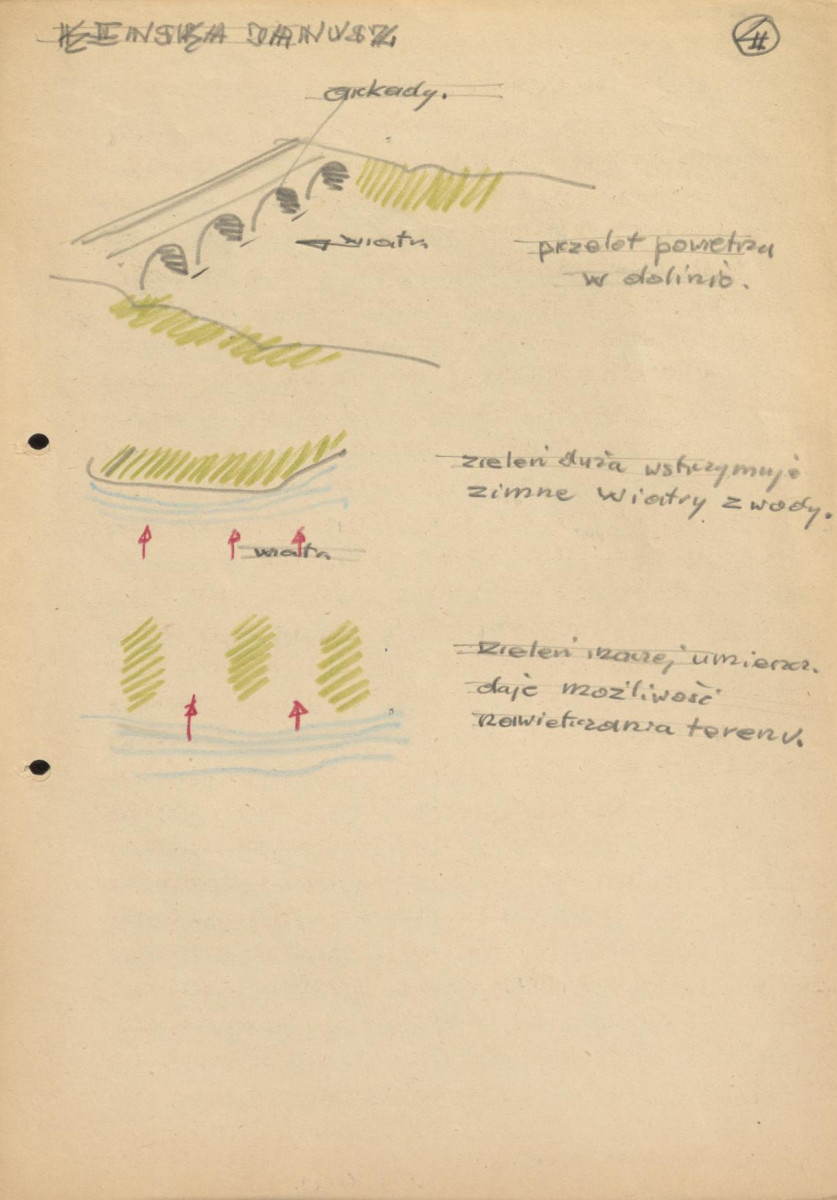 JANUSZ
4
arkady.
wiatr
przelot powietrza
w dolinie.
zieleń duża wstrzymuje
zimne wiatry z wody.
wiatr
zieleń umieszcz.
daje możliwość
nawietrzania terenu.